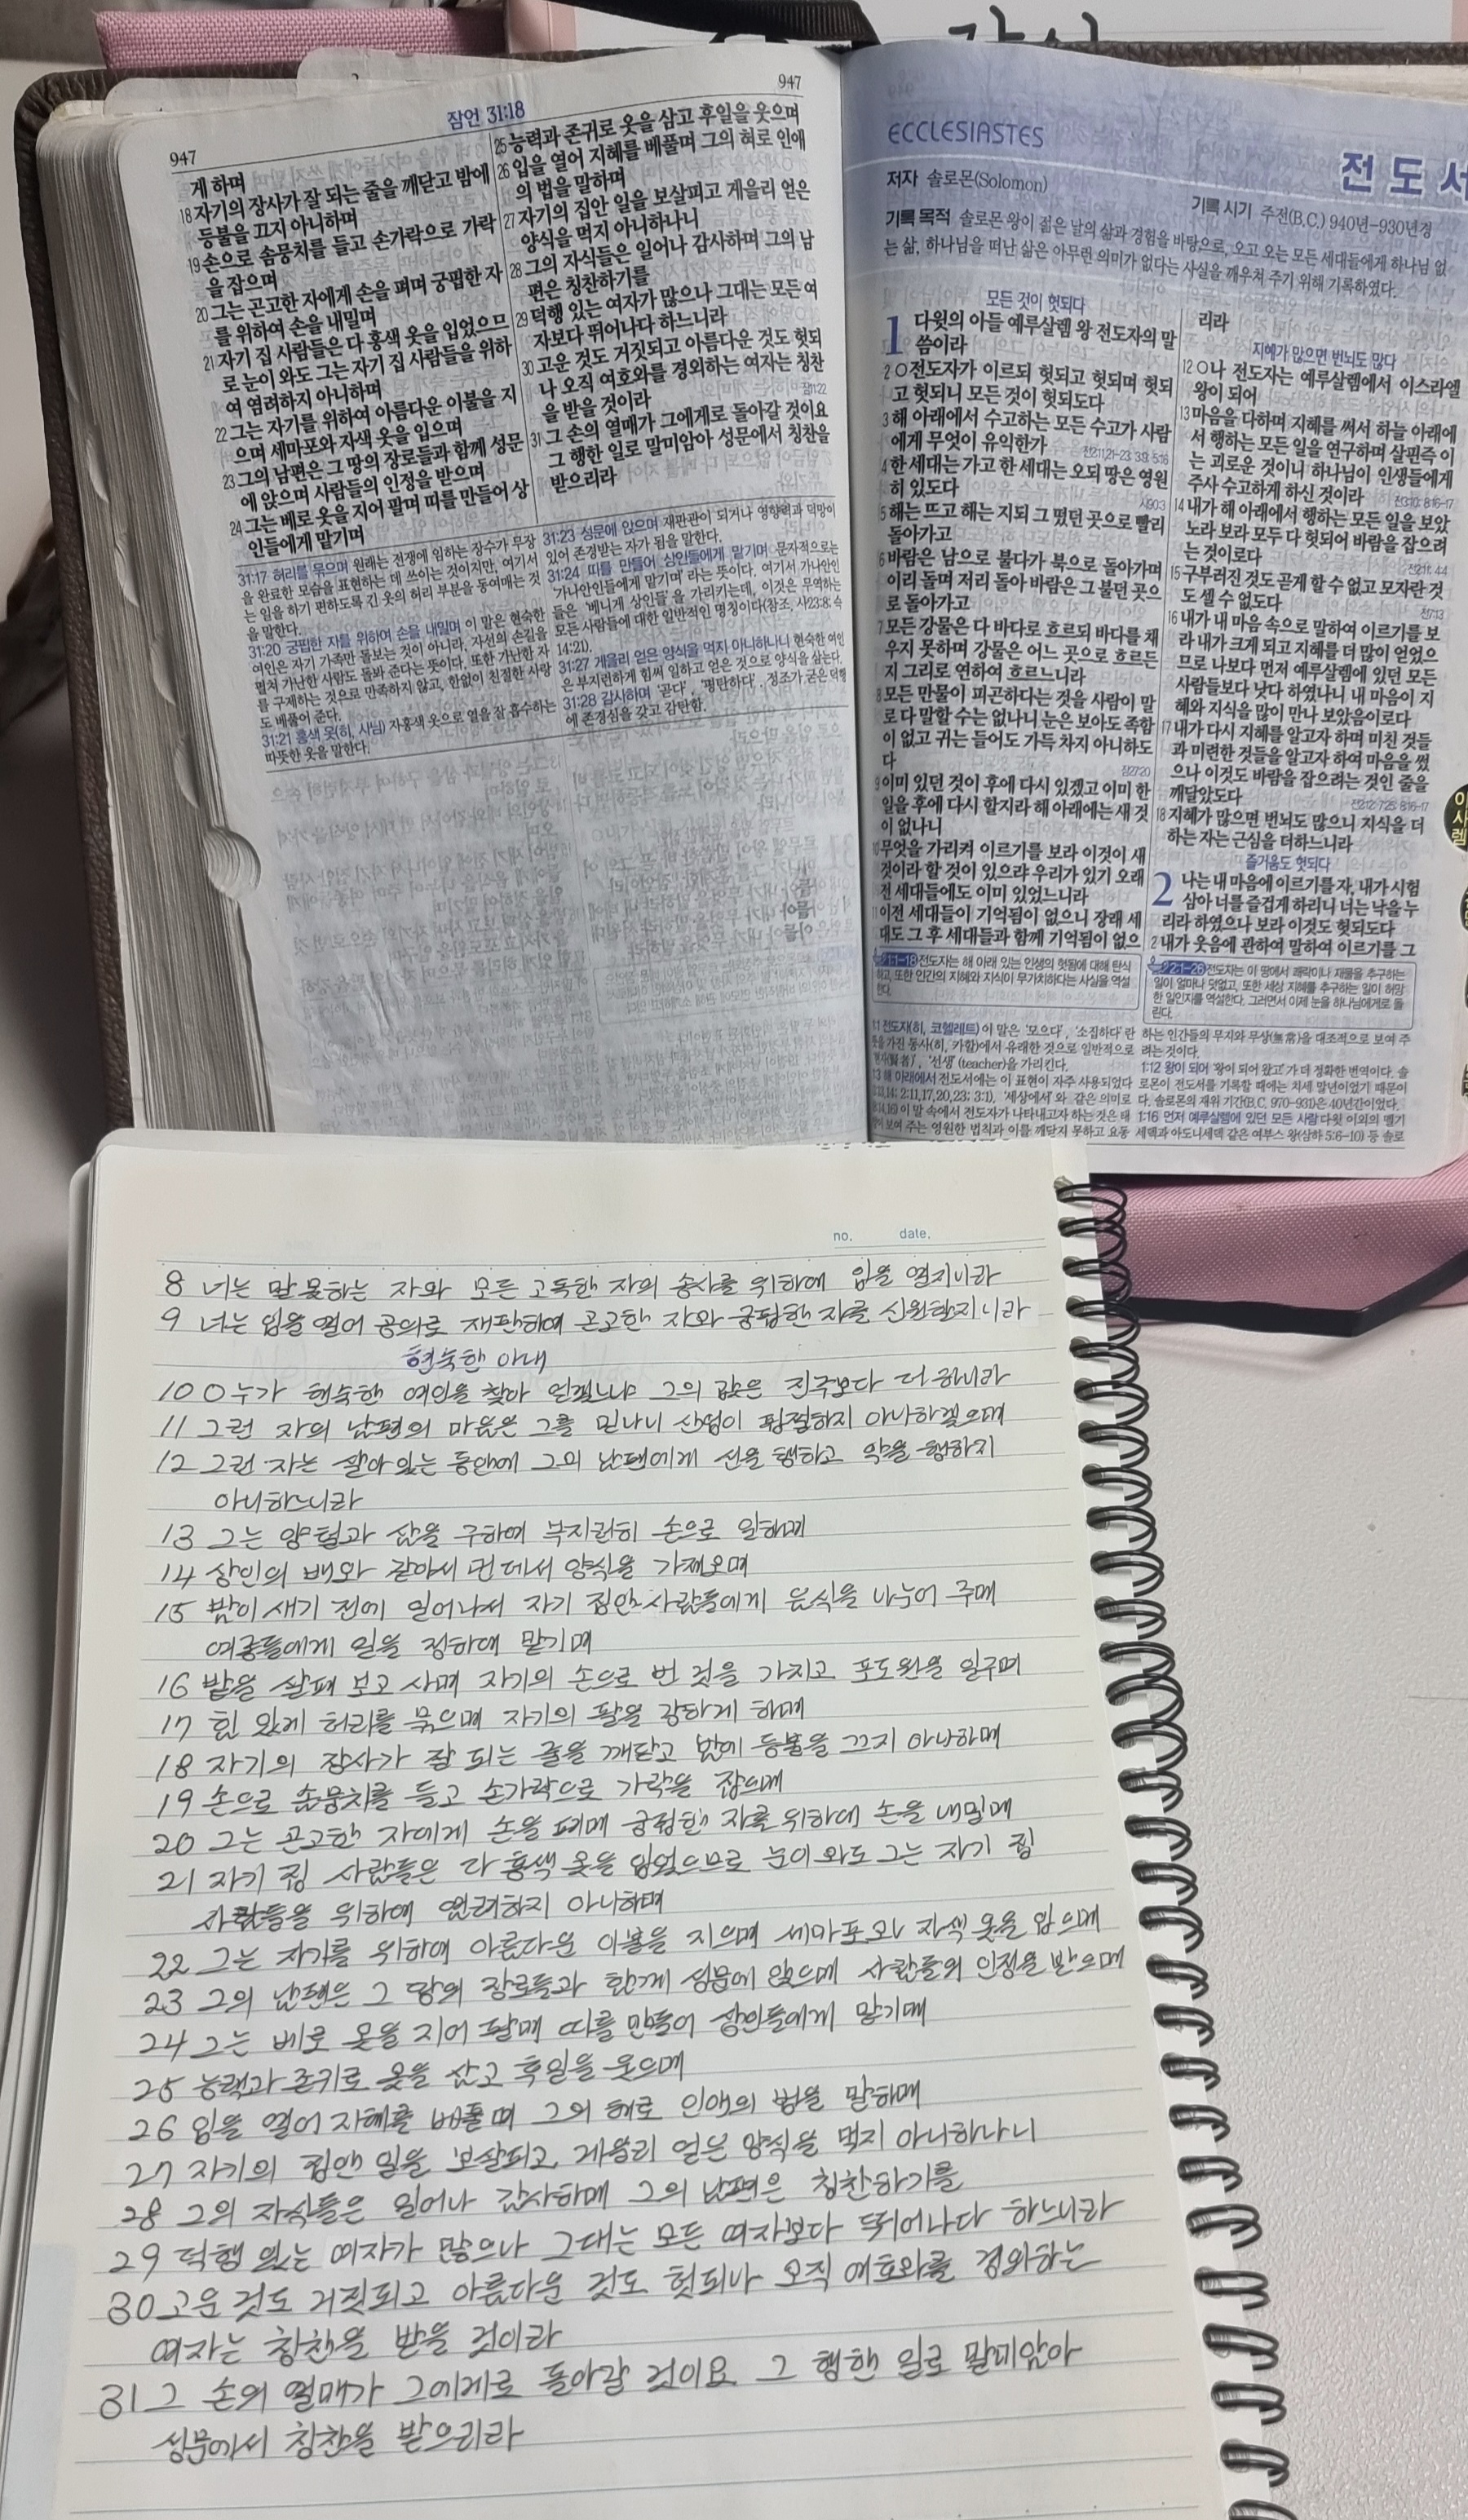 947
잠언 31:18
947
게 하며
18 자기의 장사가 잘 되는 줄을 깨닫고 밤에
등불을 끄지 아니하며
19 손으로 솜뭉치를 들고 손가락으로 가락
을 잡으며
20 그는 곤고한 자에게 손을 펴며 궁핍한 자
를 위하여 손을 내밀며
21 자기 집 사람들은 다 홍색 옷을 입었으므
로 눈이 와도 그는 자기 집 사람들을 위하
여 염려하지 아니하며
22 그는 자기를 위하여 아름다운 이불을 지
으며 세마포와 자색 옷을 입으며
23 그의 남편은 그 땅의 장로들과 함께 성문
에 앉으며 사람들의 인정을 받으며
24 그는 베로 옷을 지어 팔며 띠를 만들어 상
인들에게 맡기며
25 능력과 존귀로 옷을 삼고 후일을 웃으며
26 입을 열어 지혜를 베풀며 그의 혀로 인애
의 법을 말하며
27 자기의 집안 일을 보살피고 게을리 얻은
양식을 먹지 아니하나니
28 그의 자식들은 일어나 감사하며 그의 남
편은 칭찬하기를
29 덕행 있는 여자가 많으나 그대는 모든 여
자보다 뛰어나다 하느니라
30 고운 것도 거짓되고 아름다운 것도 헛되
나 오직 여호와를 경외하는 여자는 칭찬
을 받을 것이라
잠11:22
31 그 손의 열매가 그에게로 돌아갈 것이요
그 행한 일로 말미암아 성문에서 칭찬을
받으리라
31:17 허리를 묶으며 원래는 전쟁에 임하는 장수가 무장
을 완료한 모습을 표현하는 데 쓰이는 것이지만, 여기서
는 일을 하기 편하도록 긴 옷의 허리 부분을 동여매는 것
을 말한다.
31:20 궁핍한 자를 위하여 손을 내밀며 이 말은 현숙한
여인은 자기 가족만 돌보는 것이 아니라, 자선의 손길을
펼쳐 가난한 사람도 돌봐 준다는 뜻이다. 또한 가난한 자
를 구제하는 것으로 만족하지 않고, 한없이 친절한 사랑
도 베풀어 준다.
31:21 홍색 옷(히, 샤님) 자홍색 옷으로 열을 잘 흡수하는
따뜻한 옷을 말한다.
31:23 성문에 앉으며 재판관이 되거나 영향력과 덕망이
있어 존경받는 자가 됨을 말한다.
31:24 띠를 만들어 상인들에게 맡기며 문자적으로는
'가나안인들에게 맡기며' 라는 뜻이다. 여기서 가나안인
들은 '베니게 상인들'을 가리키는데, 이것은 무역하는
모든 사람들에 대한 일반적인 명칭이다(참조, 사23:8; 슥
14:21).
31:27 게을리 얻은 양식을 먹지 아니하나니 현숙한 여인
은 부지런하게 힘써 일하고 얻은 것으로 양식을 삼는다.
31:28 감사하며 '곧다', '평탄하다'. 정조가 굳은 덕행
에 존경심을 갖고 감탄함.
ECCLESIASTES
전도서
저자 솔로몬(Solomon)
기록 시기 주전(B.C.) 940년-930년경
기록 목적 솔로몬 왕이 젊은 날의 삶과 경험을 바탕으로, 오고 오는 모든 세대들에게 하나님 없
는 삶, 하나님을 떠난 삶은 아무런 의미가 없다는 사실을 깨우쳐 주기 위해 기록하였다.
모든 것이 헛되다
1 다윗의 아들 예루살렘 왕 전도자의 말
씀이라
2 ○전도자가 이르되 헛되고 헛되며 헛되
고 헛되니 모든 것이 헛되도다
3 해 아래에서 수고하는 모든 수고가 사람
에게 무엇이 유익한가
4 한 세대는 가고 한 세대는 오되 땅은 영원
히 있도다
5 해는 뜨고 해는 지되 그 떴던 곳으로 빨리
돌아가고
6 바람은 남으로 불다가 북으로 돌아가며
이리 돌며 저리 돌아 바람은 그 불던 곳으
로 돌아가고
7 모든 강물은 다 바다로 흐르되 바다를 채
우지 못하며 강물은 어느 곳으로 흐르든
지 그리로 연하여 흐르느니라
8 모든 만물이 피곤하다는 것을 사람이 말
로 다 말할 수는 없나니 눈은 보아도 족함
이 없고 귀는 들어도 가득 차지 아니하도
다
잠27:20
9 이미 있던 것이 후에 다시 있겠고 이미 한
일을 후에 다시 할지라 해 아래에는 새 것
이 없나니
10 무엇을 가리켜 이르기를 보라 이것이 새
것이라 할 것이 있으랴 우리가 있기 오래
전 세대들에도 이미 있었느니라
11 이전 세대들이 기억됨이 없으니 장래 세
대도 그 후 세대들과 함께 기억됨이 없으
리라
지혜가 많으면 번뇌도 많다
12 ○나 전도자는 예루살렘에서 이스라엘
왕이 되어
13 마음을 다하며 지혜를 써서 하늘 아래에
서 행하는 모든 일을 연구하며 살핀즉 이
는 괴로운 것이니 하나님이 인생들에게
주사 수고하게 하신 것이라
14 내가 해 아래에서 행하는 모든 일을 보았
노라 보라 모두 다 헛되어 바람을 잡으려
는 것이로다
15 구부러진 것도 곧게 할 수 없고 모자란 것
도 셀 수 없도다
전7:13
16 내가 내 마음 속으로 말하여 이르기를 보
라 내가 크게 되고 지혜를 더 많이 얻었으
므로 나보다 먼저 예루살렘에 있던 모든
사람들보다 낫다 하였나니 내 마음이 지
혜와 지식을 많이 만나 보았음이로다
17 내가 다시 지혜를 알고자 하며 미친 것들
과 미련한 것들을 알고자 하여 마음을 썼
으나 이것도 바람을 잡으려는 것인 줄을
깨달았도다
18 지혜가 많으면 번뇌도 많으니 지식을 더
하는 자는 근심을 더하느니라
즐거움도 헛되다
2 나는 내 마음에 이르기를 자, 내가 시험
삼아 너를 즐겁게 하리니 너는 낙을 누
리라 하였으나 보라 이것도 헛되도다
2 내가 웃음에 관하여 말하여 이르기를 그
1:1-18 전도자는 해 아래 있는 인생의 헛됨에 대해 탄식
하고, 또한 인간의 지혜와 지식이 무가치하다는 사실을 역설
한다.
2:1-26 전도자는 이 땅에서 쾌락이나 재물을 추구하는
일이 얼마나 덧없고, 또한 세상 지혜를 추구하는 일이 허망
한 일인지를 역설한다. 그러면서 이제 눈을 하나님에게로 돌
린다.
1:1 전도자(히, 코헬레트) 이 말은 '모으다', '소집하다'란
뜻을 가진 동사(히, 카할)에서 유래한 것으로 일반적으로
'현자(賢者)', '선생'(teacher)을 가리킨다.
1:3 해 아래에서 전도서에는 이 표현이 자주 사용되었다
2:11,17,20,23; 3:1), '세상에서'와 같은 의미로
이 말 속에서 전도자가 나타내고자 하는 것은 태
보여 주는 영원한 법칙과 이를 깨닫지 못하고 요동
하는 인간들의 무지와 무상(無常)을 대조적으로 보여 주
려는 것이다.
1:12 왕이 되어 '왕이 되어 왔고'가 더 정확한 번역이다. 솔
로몬이 전도서를 기록할 때에는 치세 말년이었기 때문이
다. 솔로몬의 재위 기간(B.C. 970-931)은 40년간이었다.
1:16 먼저 예루살렘에 있던 모든 사람 다윗 이외의 멜기
세덱과 아도니세덱 같은 여부스 왕(삼하 5:6-10) 등 솔로
no. date.
8 너는 말 못하는 자와 모든 고독한 자의 송사를 위하여 입을 열지니라
9 너는 입을 열어 공의로 재판하여 곤고한 자와 궁핍한 자를 신원할지니라
현숙한 아내
10 ○누가 현숙한 여인을 찾아 얻겠느냐 그의 값은 진주보다 더 하니라
11 그런 자의 남편의 마음은 그를 믿나니 산업이 핍절하지 아니하겠으며
12 그런 자는 살아 있는 동안에 그의 남편에게 선을 행하고 악을 행하지
아니하느니라
13 그는 양털과 삼을 구하여 부지런히 손으로 일하며
14 상인의 배와 같아서 먼 데서 양식을 가져오며
15 밤이 새기 전에 일어나서 자기 집안 사람들에게 음식을 나누어 주며
여종들에게 일을 정하여 맡기며
16 밭을 살펴 보고 사며 자기의 손으로 번 것을 가지고 포도원을 일구며
17 힘 있게 허리를 묶으며 자기의 팔을 강하게 하며
18 자기의 장사가 잘 되는 줄을 깨닫고 밤에 등불을 끄지 아니하며
19 손으로 솜뭉치를 들고 손가락으로 가락을 잡으며
20 그는 곤고한 자에게 손을 펴며 궁핍한 자를 위하여 손을 내밀며
21 자기 집 사람들은 다 홍색 옷을 입었으므로 눈이 와도 그는 자기 집
사람들을 위하여 염려하지 아니하며
22 그는 자기를 위하여 아름다운 이불을 지으며 세마포와 자색 옷을 입으며
23 그의 남편은 그 땅의 장로들과 함께 성문에 앉으며 사람들의 인정을 받으며
24 그는 베로 옷을 지어 팔며 띠를 만들어 상인들에게 맡기며
25 능력과 존귀로 옷을 삼고 후일을 웃으며
26 입을 열어 지혜를 베풀며 그의 혀로 인애의 법을 말하며
27 자기의 집안 일을 보살피고 게을리 얻은 양식을 먹지 아니하나니
28 그의 자식들은 일어나 감사하며 그의 남편은 칭찬하기를
29 덕행 있는 여자가 많으나 그대는 모든 여자보다 뛰어나다 하느니라
30 고운 것도 거짓되고 아름다운 것도 헛되나 오직 여호와를 경외하는
여자는 칭찬을 받을 것이라
31 그 손의 열매가 그에게로 돌아갈 것이요 그 행한 일로 말미암아
성문에서 칭찬을 받으리라